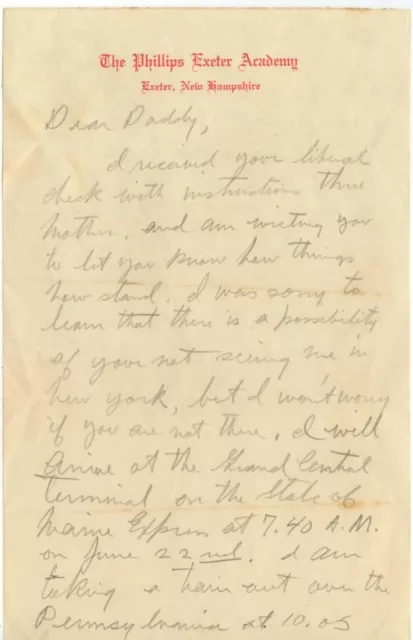 The Phillips Exeter Academy
Exeter, New Hampshire
Dear Daddy,
I recavid your liberal
check with instructions thru
mother, and am writing you
to let you know how things
now stand. I was sorry to
learn that there is a possibility
of your not seeing me in
new york, but I won't worry
if you are not there. I will
arrive at the Grand Central
Terminal on the State of
Maine Express at 7.40 A.M.
on June 22nd. I am
taking a train out over the
Pennsylvania at 10.05